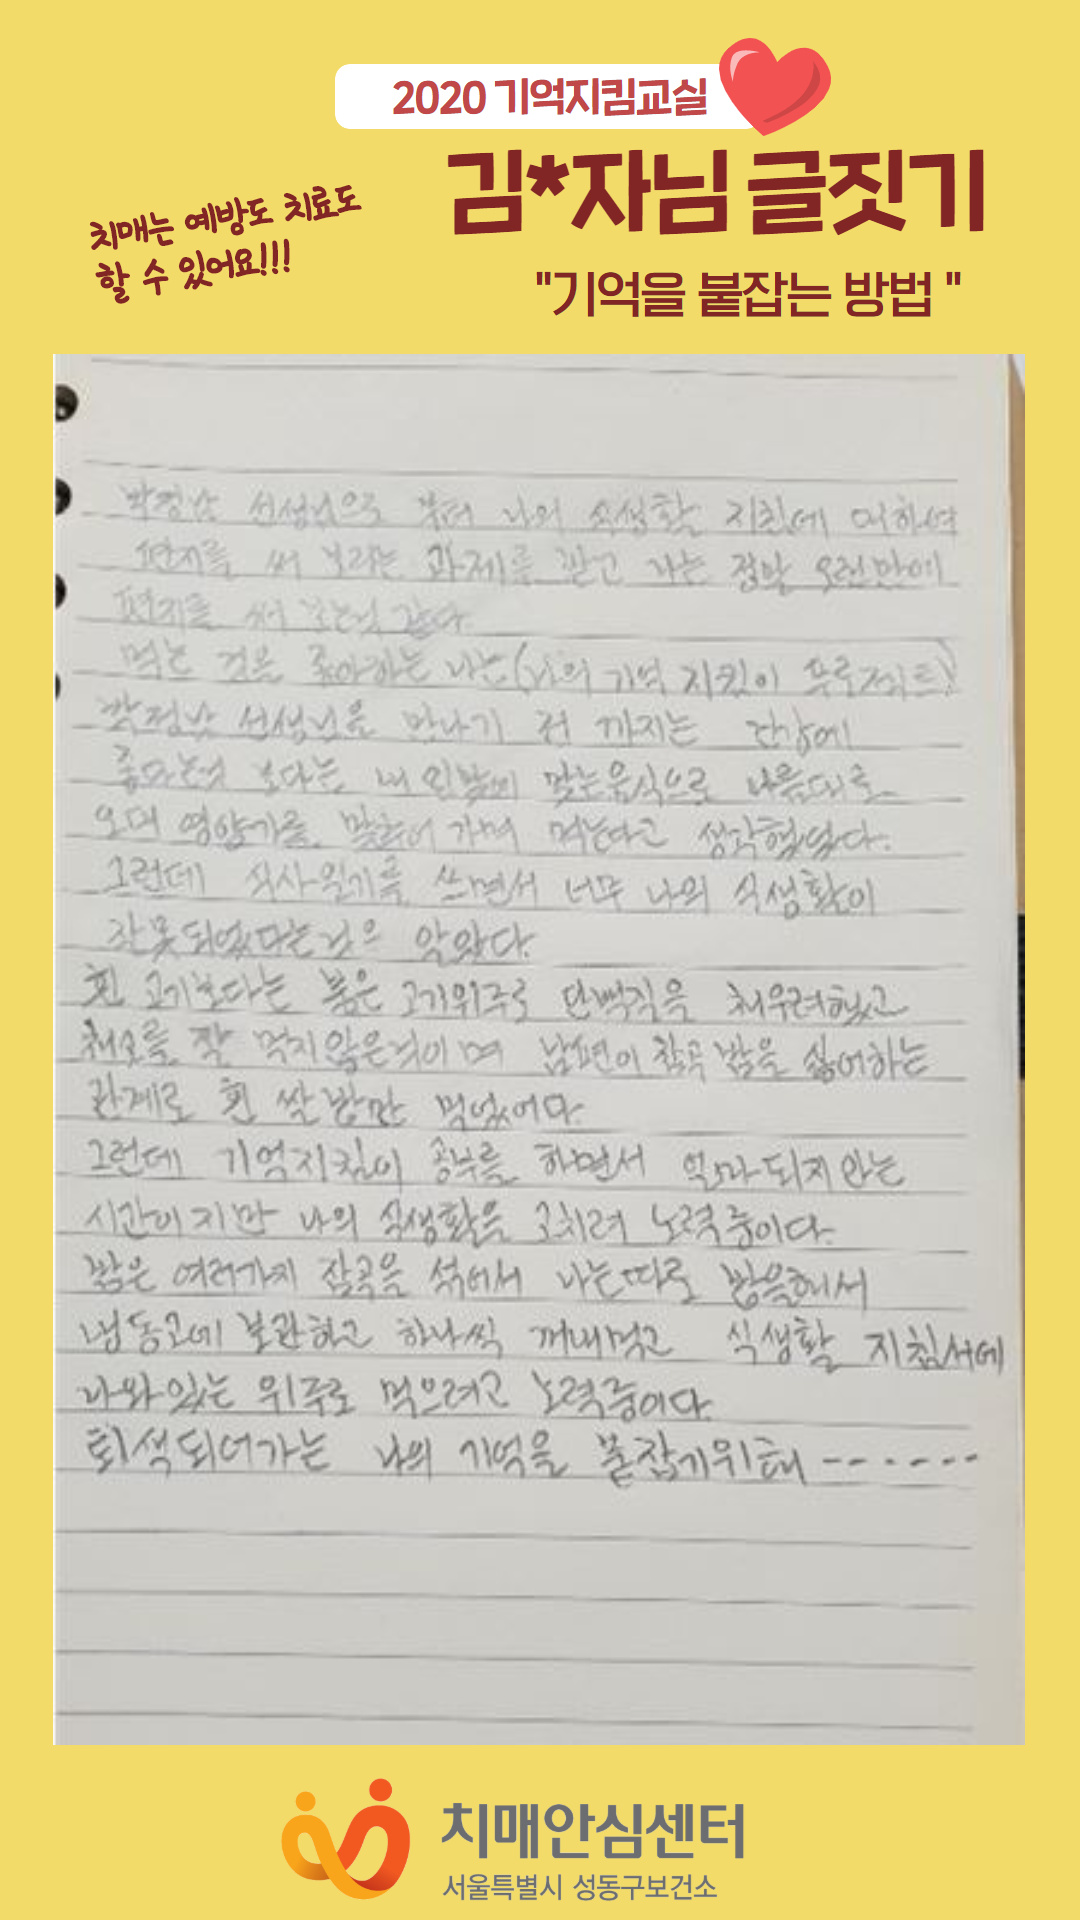 2020 기억지킴교실
김*자님 글짓기
치매는 예방도 치료도
할 수 있어요!!!
"기억을 붙잡는 방법 "
선생님으로 부터 나의 식생활 지침에 대하여
편지를 써 보라는 과제를 받고 나는 정말 오랜만에
편지를 써 보는것 같다.
먹는 것을 좋아하는 나는(나의 기억 지킴이 프로젝트)
선생님을 만나기 전 까지는 건강에
좋다는것 보다는 내 입맛에 맞는음식으로 나름대로
오대 영양가를 맞추어 가며 먹는다고 생각했었다.
그런데 식사일기를 쓰면서 너무 나의 식생활이
잘못되었다는것은 알았다.
흰 고기보다는 붉은 고기위주로 단백질을 채우려했고
채소를 잘 먹지않은것이며 남편이 잡곡밥을 싫어하는
관계로 흰 쌀밥만 먹었었다.
그런데 기억지킴이 공부를 하면서 얼마되지않는
시간이지만 나의 식생활을 고치려 노력중이다.
밥은 여러가지 잡곡을 섞어서 나는따로 밥을해서
냉동고에 보관하고 하나씩 꺼내먹고 식생활 지침서에
나와있는 위주로 먹으려고 노력중이다.
퇴색되어가는 나의 기억을 붙잡기위해 -------
치매안심센터
서울특별시 성동구보건소